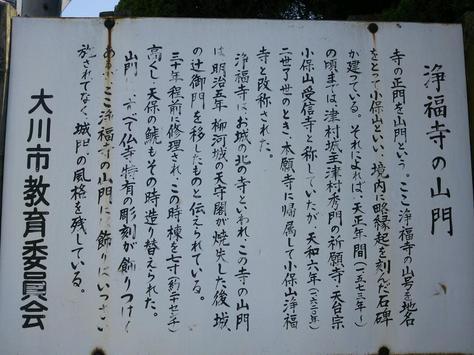 浄福寺の山門
寺の正門を山門という。ここ浄福寺の山号を地名
をとって小保山といい、境内に略縁起を刻んだ石碑
が建っている。それによれば、天正年間(一五七三年〜)
の頃までは、津村城主津村秀門の祈願寺・天台宗
小保山受信寺と称していたが、天和六年(一六二〇年)
二世了世のとき、本願寺に帰属して小保山浄福
寺と改称された。
浄福寺はお城の北の寺といわれ、この寺の山門
は明治五年、柳河城の天守閣が焼失した後、城
の辻御門を移したものと伝えられている。
三十年程前に修理され、この時棟を七寸(約二十センチ)
高くし、天保の鯱もその時造り替えられた。
山門 すべて仏寺特有の彫刻が飾りつけ
ある ここ浄福寺の山門に 飾りはいっさい
施されてなく、城門の風格を残している。
大川市教育委員会